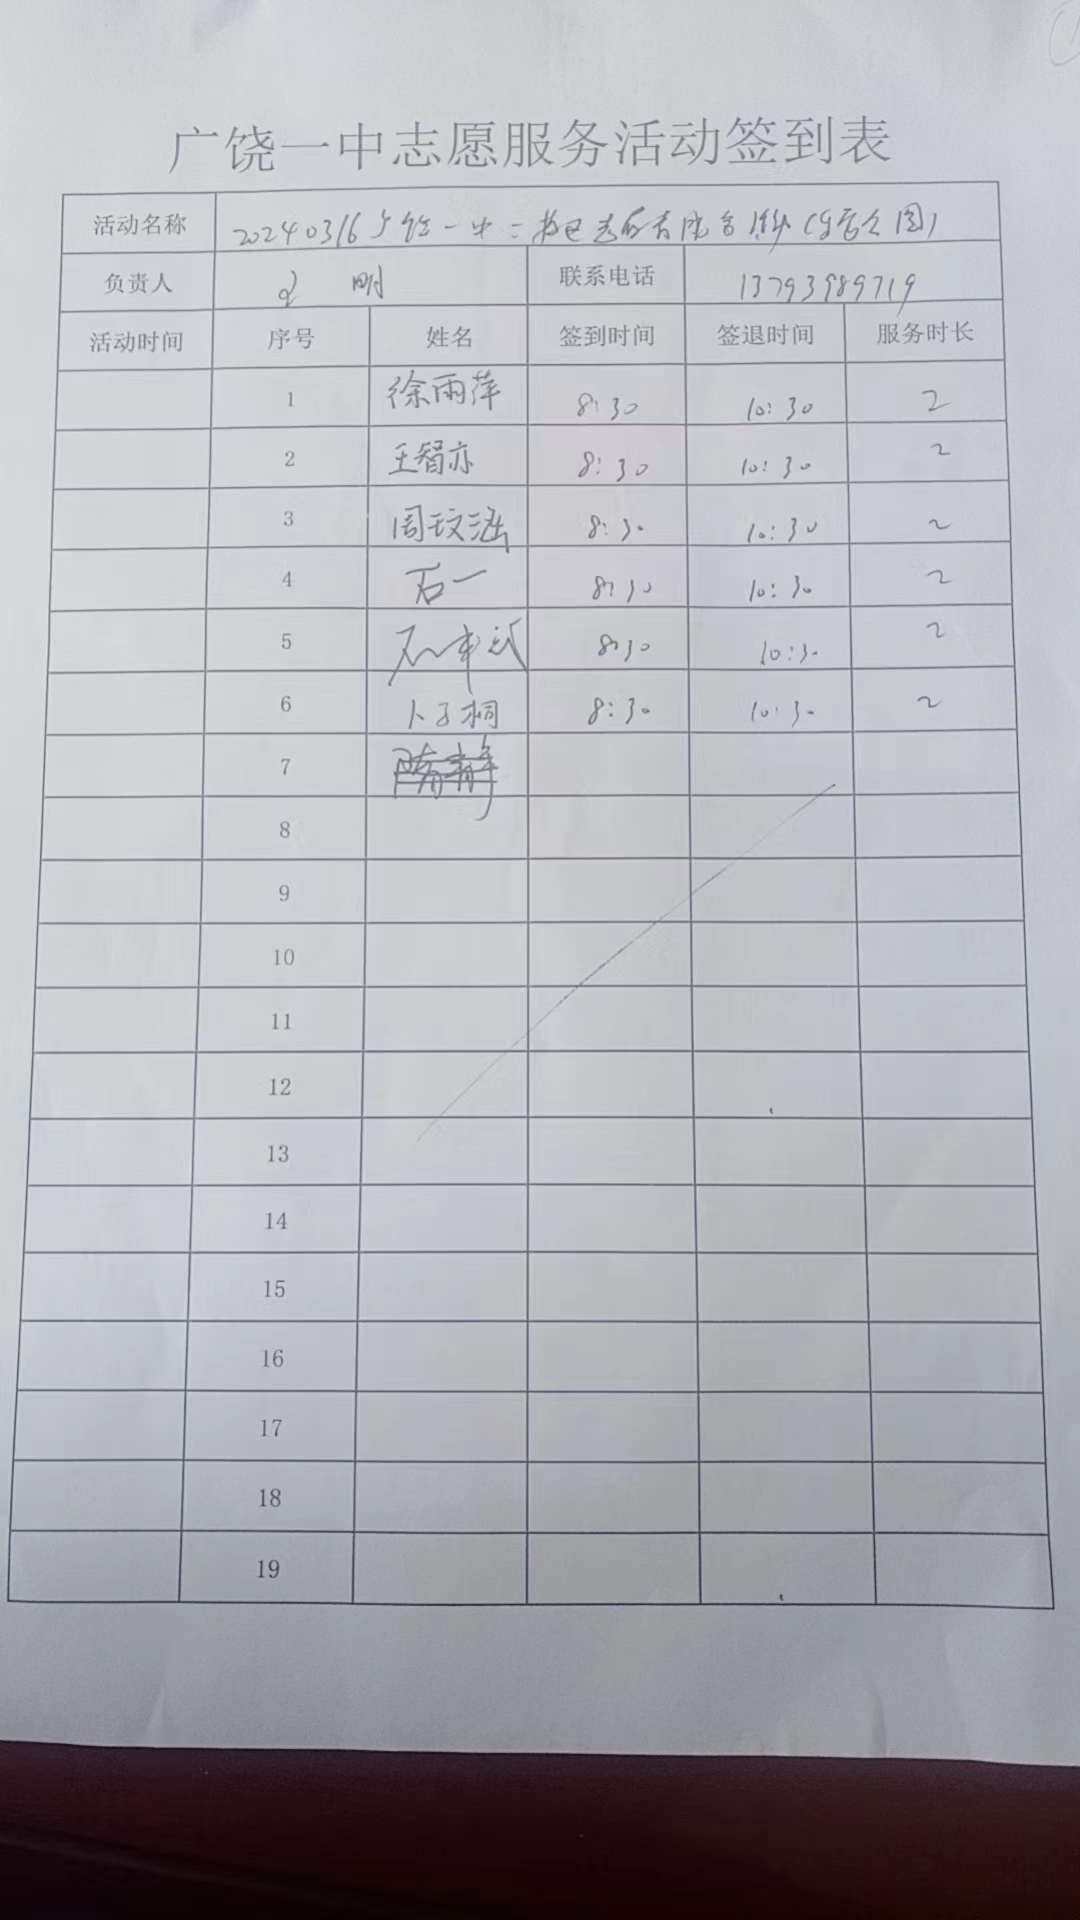 广饶一中志愿服务活动签到表
活动名称 20240316广饶一中二校区志愿者服务活动
负责人 明 联系电话 13793989719
活动时间 序号 姓名 签到时间 签退时间 服务时长
1 徐雨萍 8:30 10:30 2
2 王智亦 8:30 10:30 2
3 周玟涵 8:30 10:30 2
4 石一 8:30 10:30 2
5 8:30 10:30 2
6 卜子桐 8:30 10:30 2
7
8
9
10
11
12
13
14
15
16
17
18
19